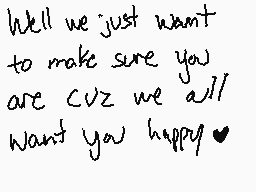 Well we just want
to make sure you
are cuz we all
want you happy ♥